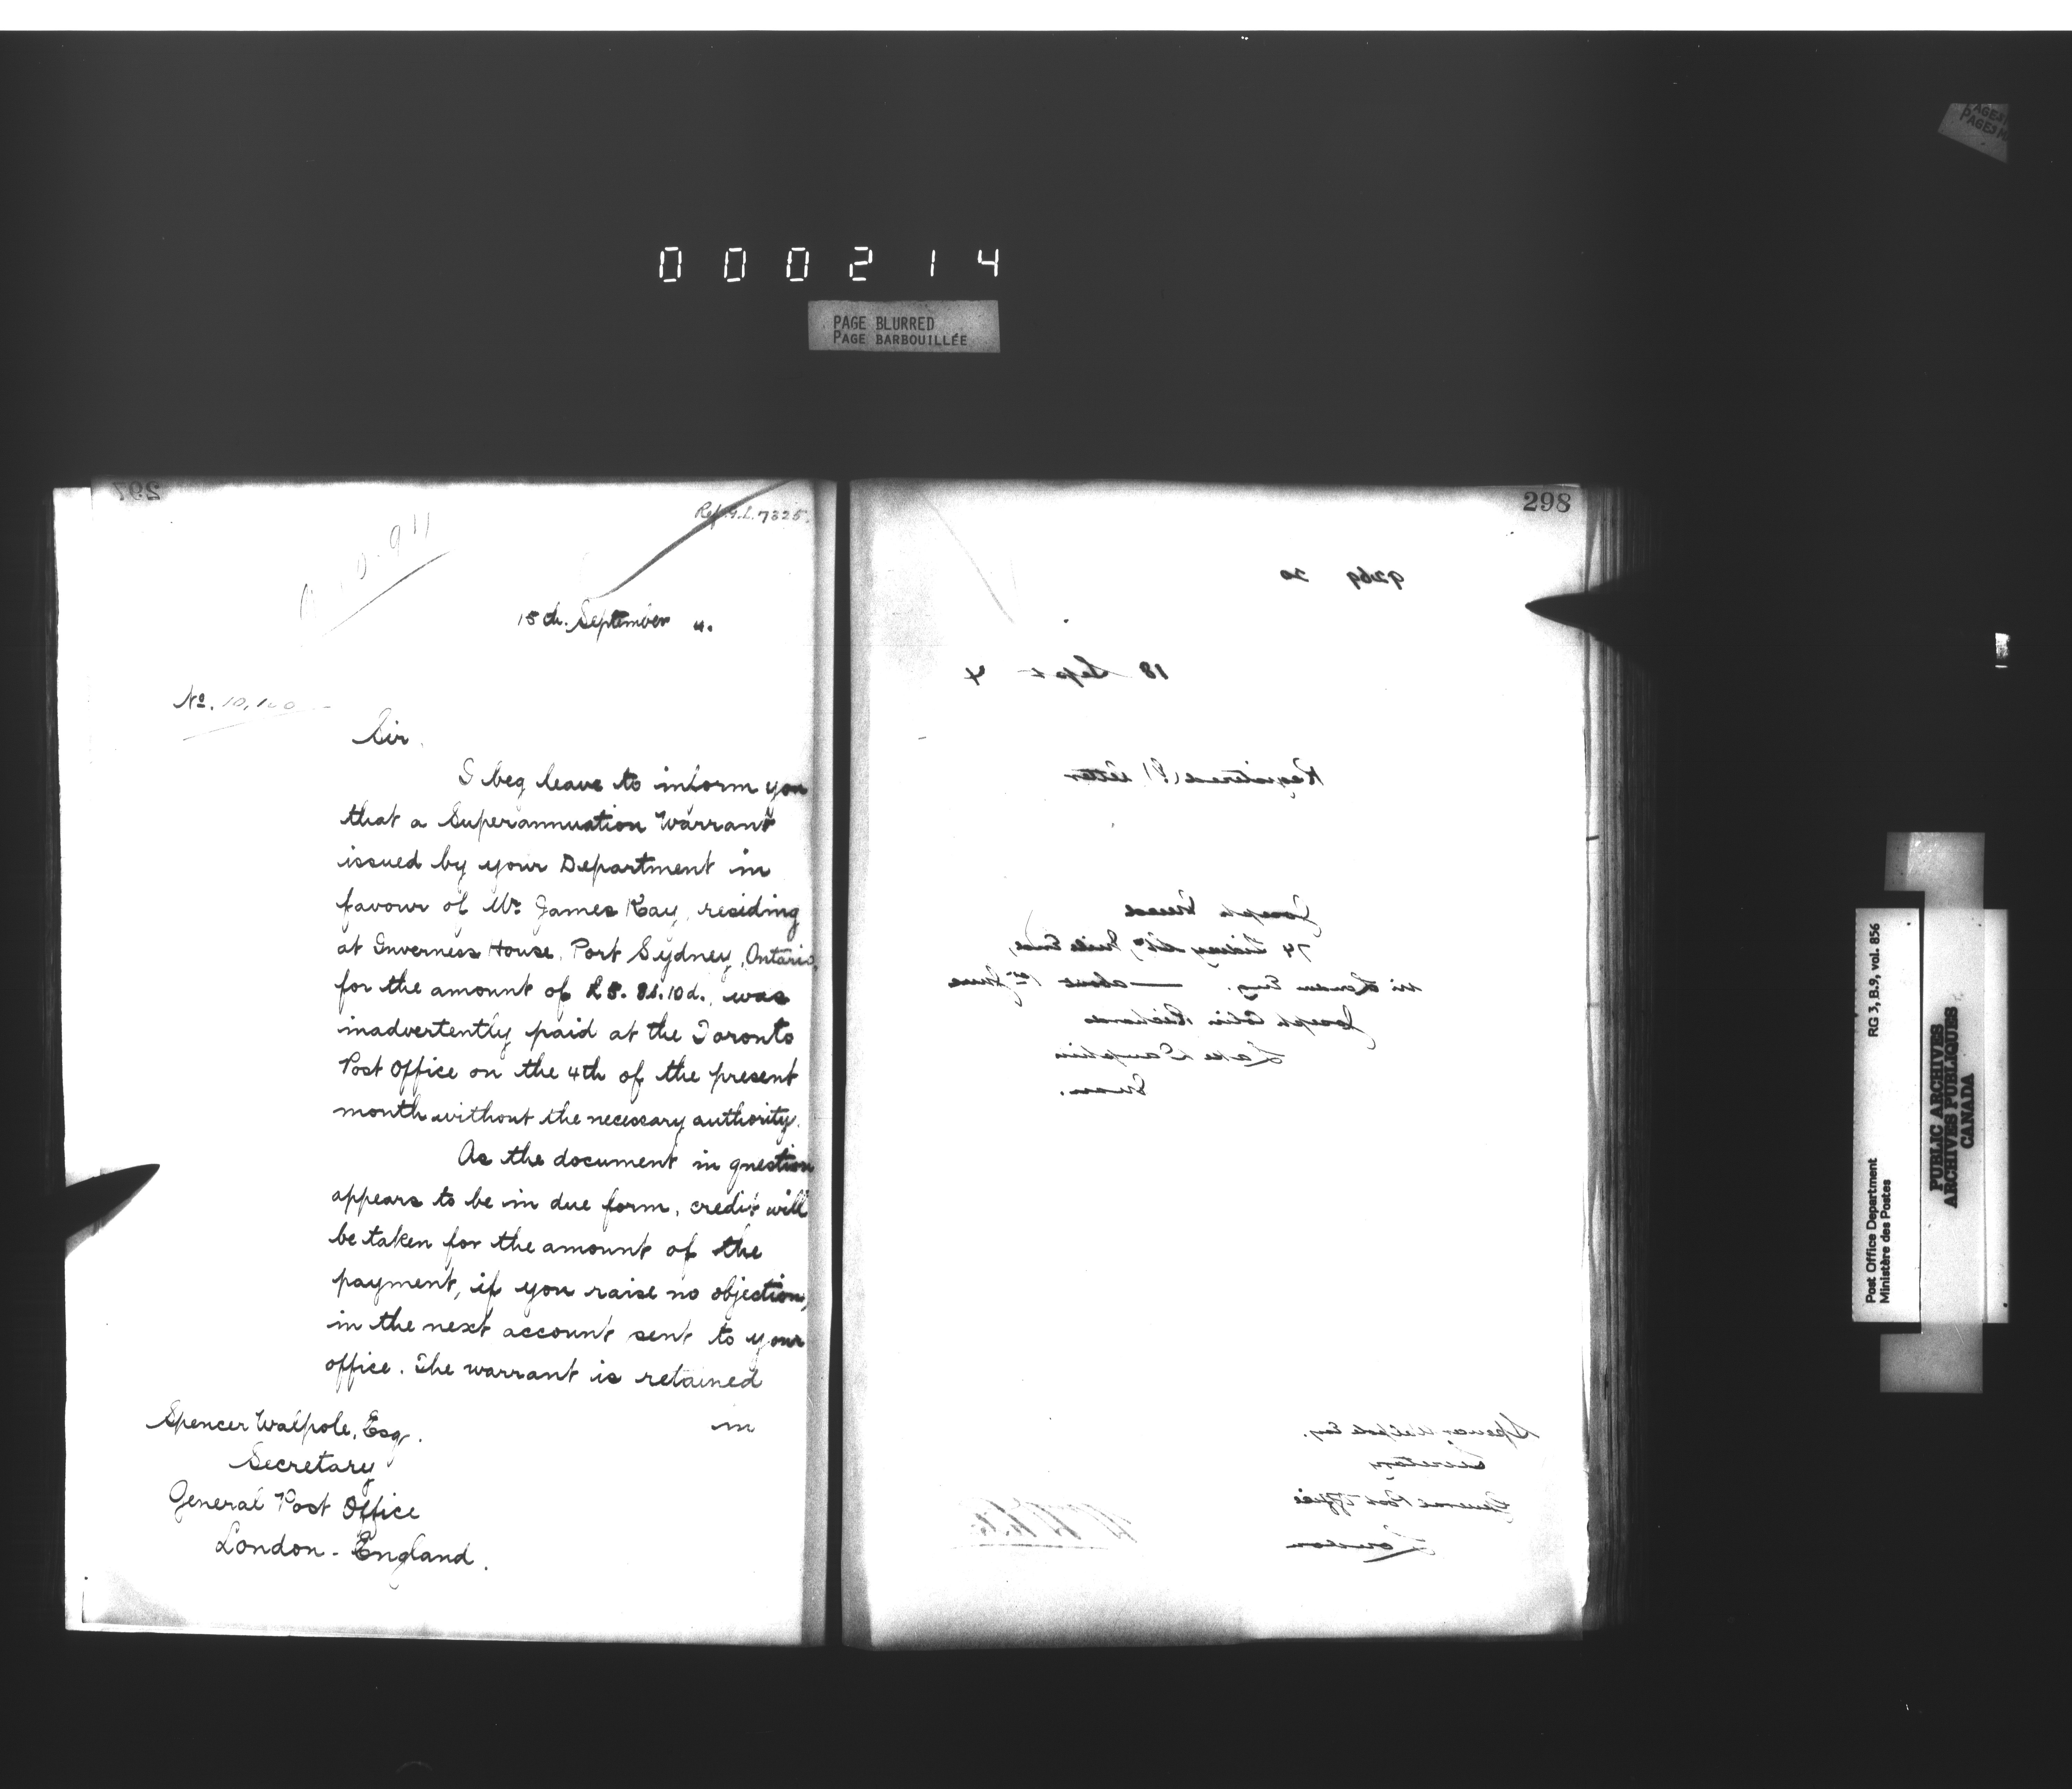 000214
PAGE BLURRED
PAGE BARBOUILLÉE
297
Ref. G.L. 7325.
15th. September 4.
No. 10,140
Sir,
I beg leave to inform you
that a Superannuation Warrant
issued by your Department in
favour of Mr. James Kay, residing
at Inverness House, Port Sydney, Ontario,
for the amount of £8. 8s. 10d., was
inadvertently paid at the Toronto
Post Office on the 4th of the present
month without the necessary authority.
As the document in question
appears to be in due form, credit will
be taken for the amount of the
payment, if you raise no objection,
in the next account sent to your
office. The warrant is retained
in
Spencer Walpole, Esq.
Secretary
General Post Office
London - England.
298
9269 20
18 Sept 4
Registered (?) letter
Joseph
74 Sidney St, Mile End,
London Eng. — about 1st June
Joseph Richards
Lake Dauphin
Man.
Spencer Walpole Esq.
Secretary
General Post Office
London
Post Office Department
Ministère des Postes
RG 3, B.9, vol. 856
PUBLIC ARCHIVES
ARCHIVES PUBLIQUES
CANADA